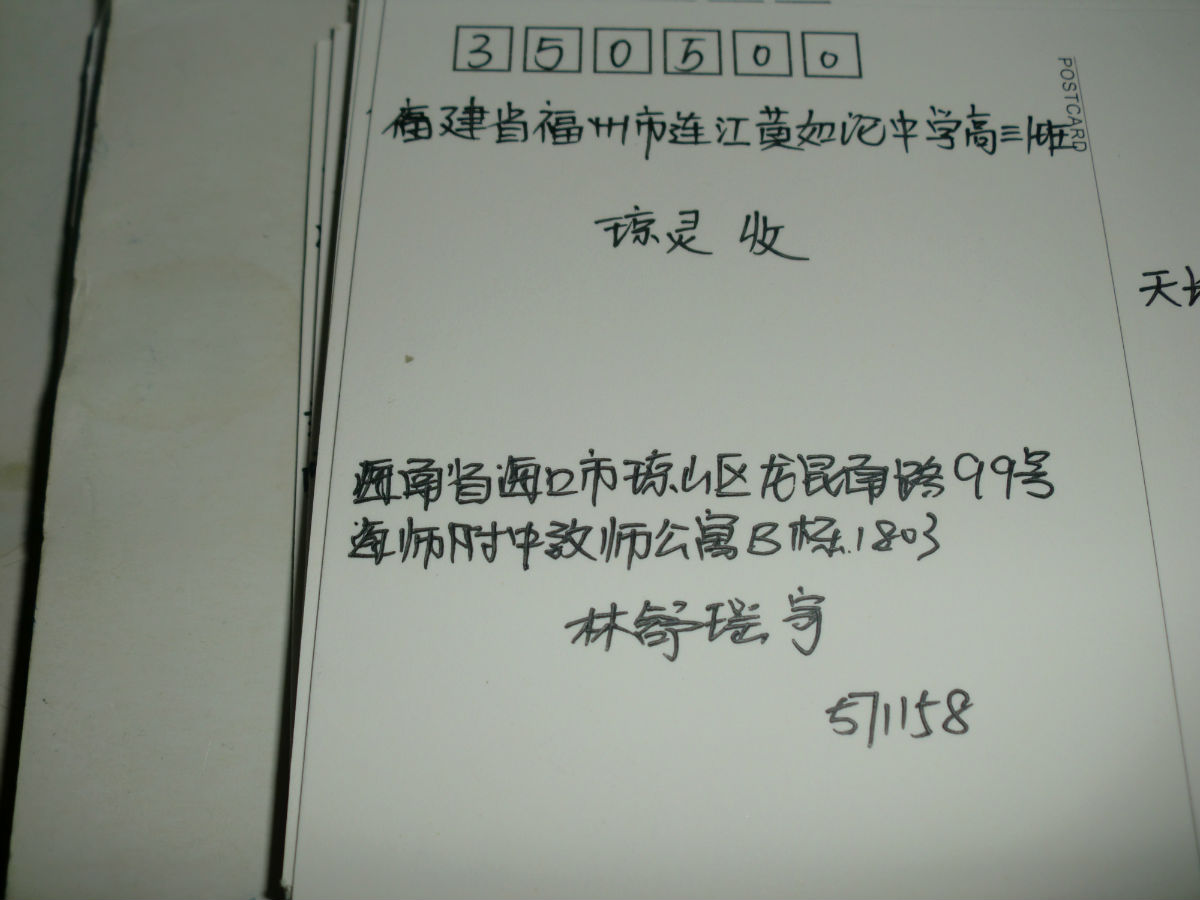 350500
福建省福州市连江黄如论中学高三1班
POSTCARD
琼灵 收
天
海南省海口市琼山区龙昆南路99号
海师附中教师公寓B栋1803
林舒瑶寄
571158